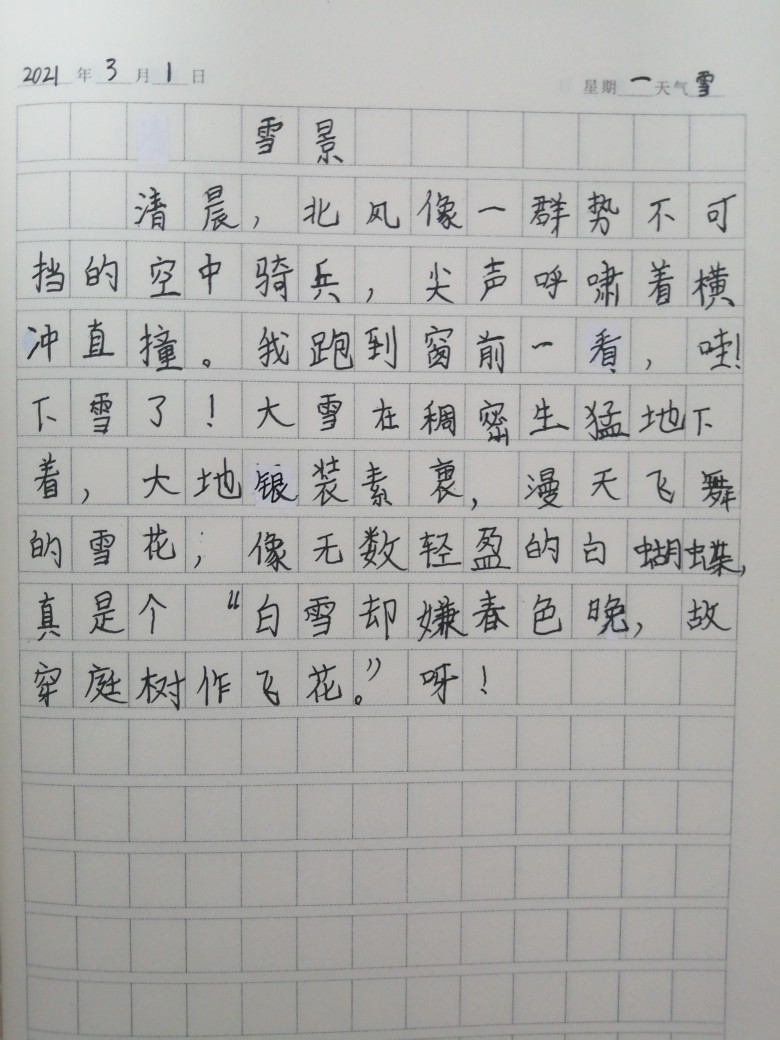 2021年3月1日 星期一天气雪
雪景
清晨，北风像一群势不可
挡的空中骑兵，尖声呼啸着横
冲直撞。我跑到窗前一看，哇！
下雪了！大雪在稠密生猛地下
着，大地银装素裹，漫天飞舞
的雪花；像无数轻盈的白蝴蝶，
真是个“白雪却嫌春色晚，故
穿庭树作飞花。”呀！